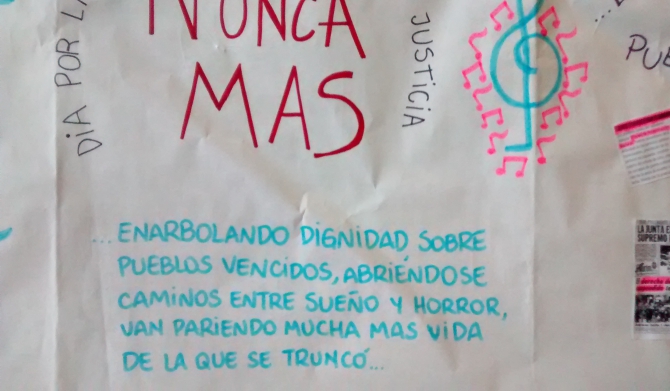 NUNCA
MAS
DIA POR LA
JUSTICIA
...ENARBOLANDO DIGNIDAD SOBRE
PUEBLOS VENCIDOS, ABRIÉNDOSE
CAMINOS ENTRE SUEÑO Y HORROR,
VAN PARIENDO MUCHA MAS VIDA
DE LA QUE SE TRUNCÓ...
LA JUNTA E
SUPREMO